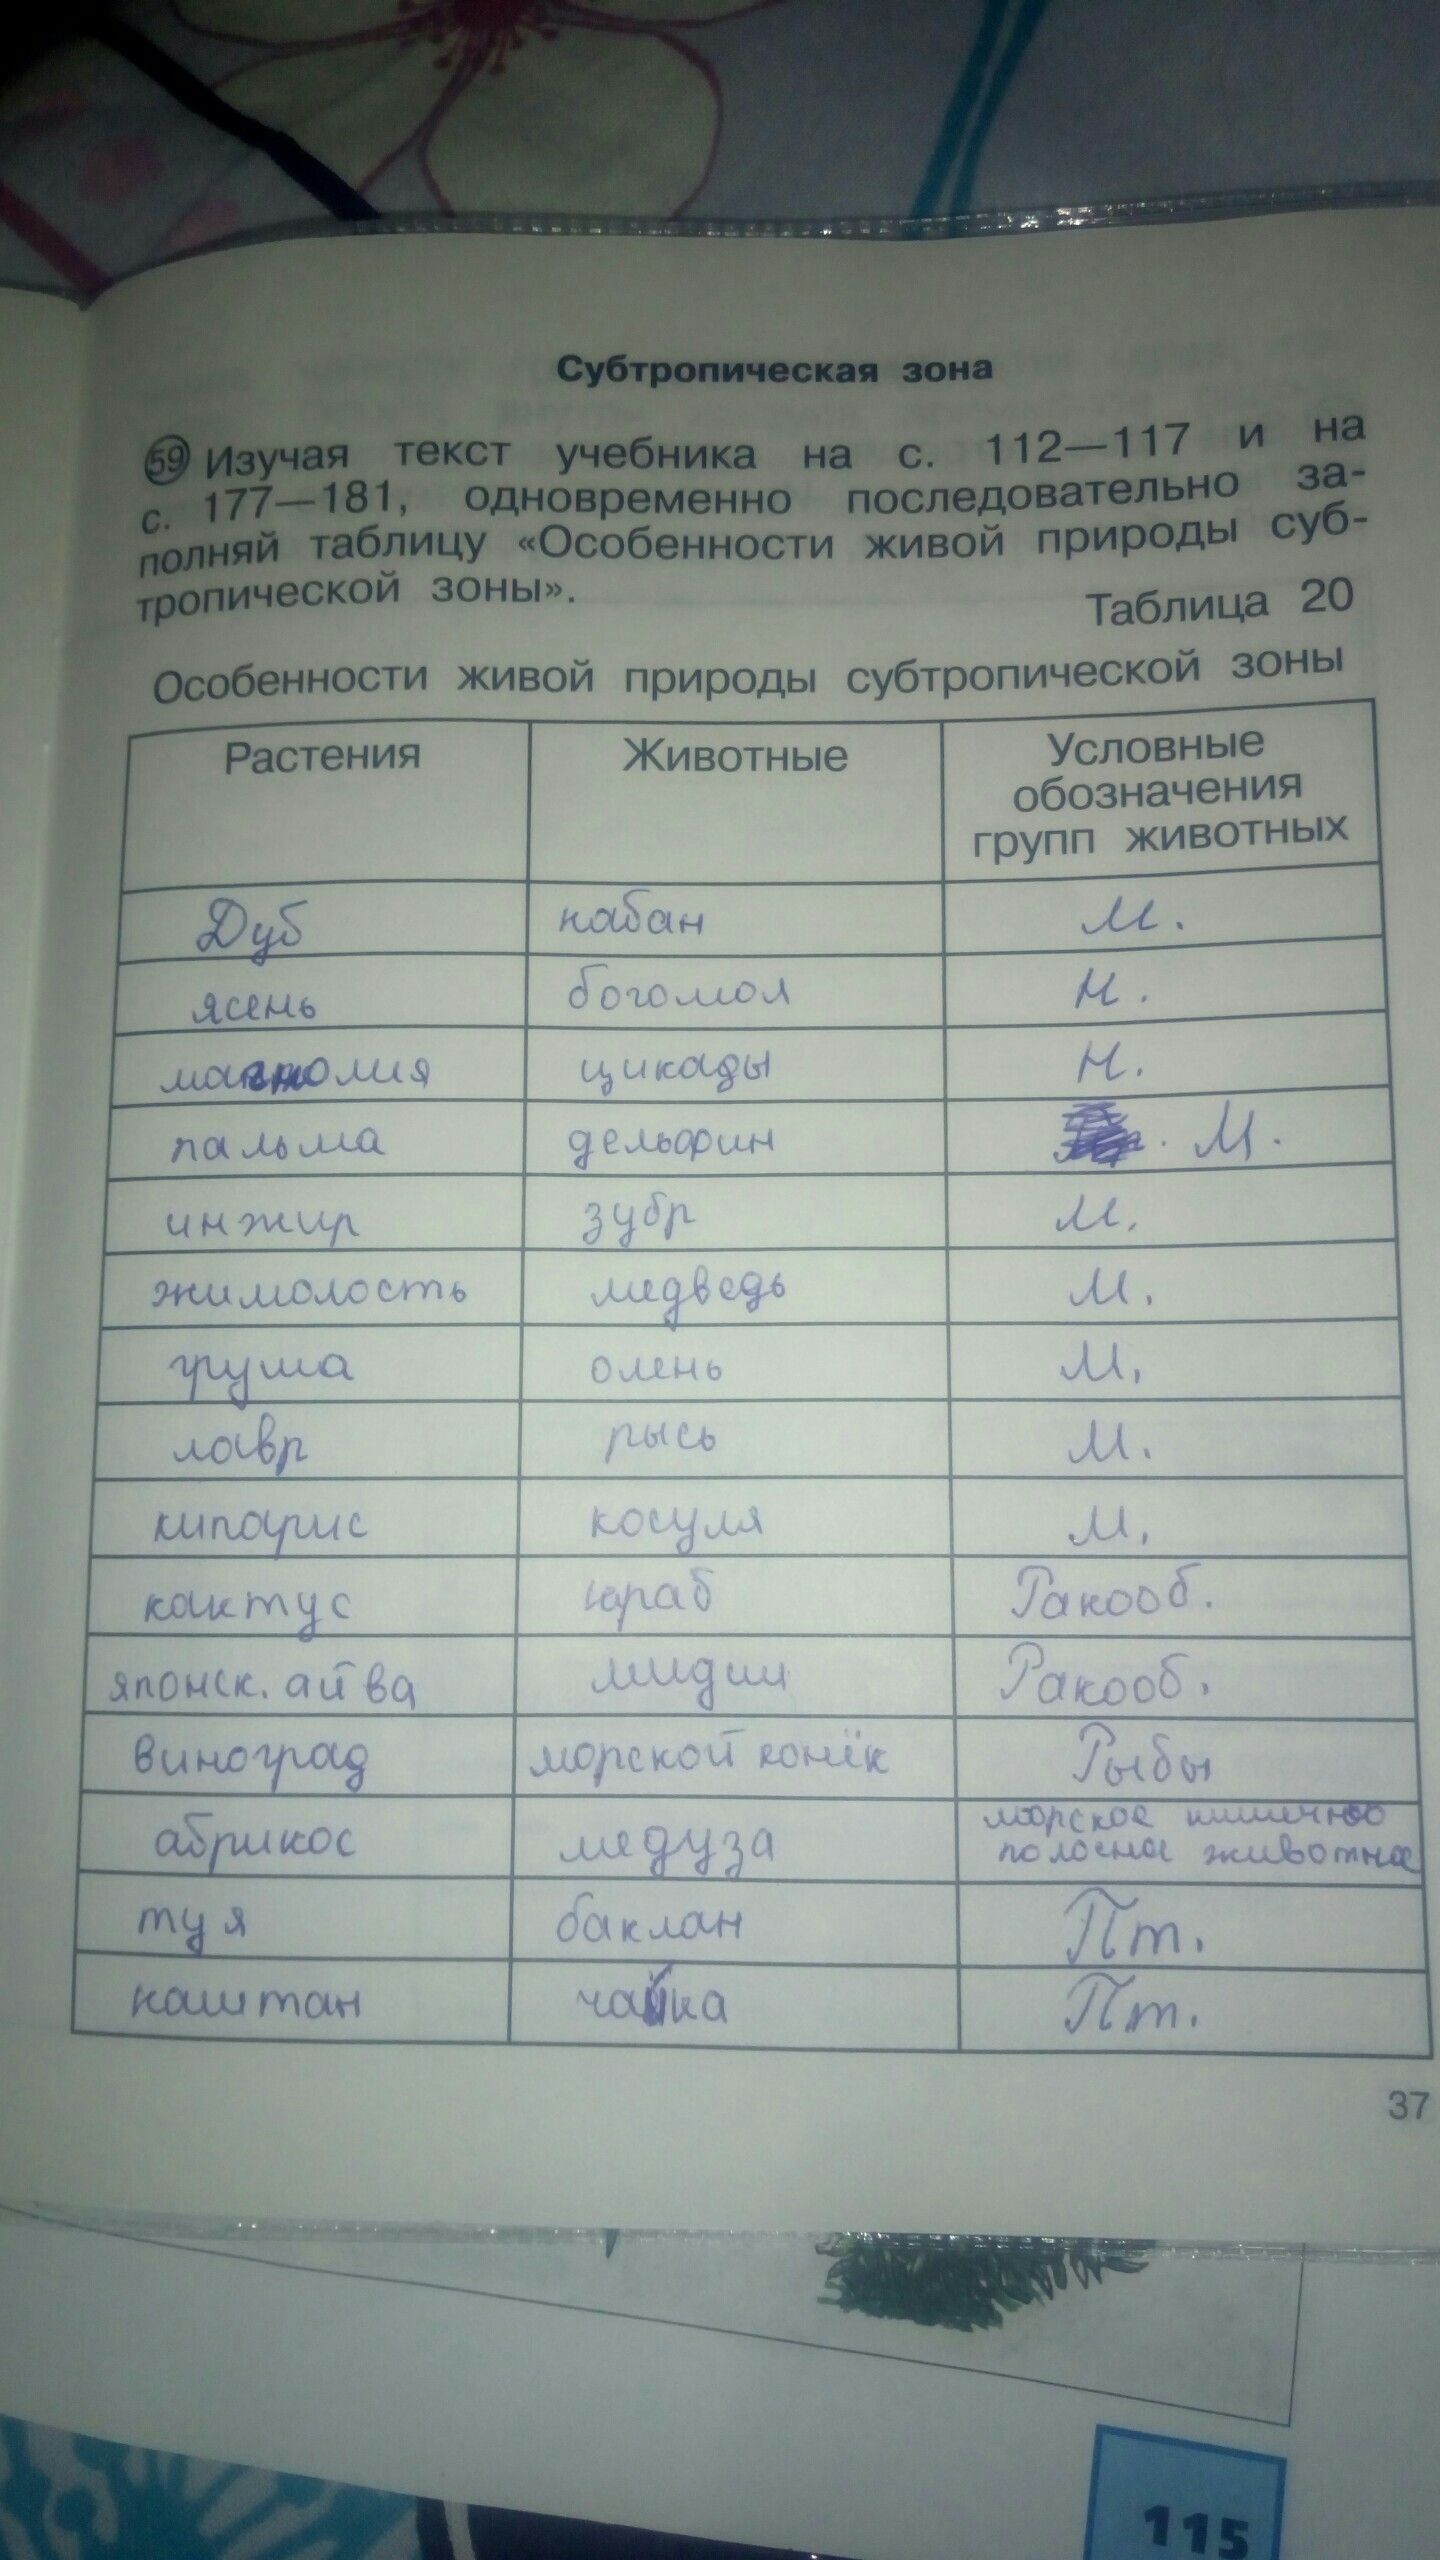 Субтропическая зона
59 Изучая текст учебника на с. 112—117 и на
с. 177—181, одновременно последовательно за-
полняй таблицу «Особенности живой природы суб-
тропической зоны».
Таблица 20
Особенности живой природы субтропической зоны
Растения Животные Условные
обозначения
групп животных
Дуб кабан М.
ясень богомол Н.
магнолия цикады Н.
пальма дельфин М.
инжир зубр М.
жимолость медведь М.
груша олень М.
лавр рысь М.
кипарис косуля М.
кактус краб Ракооб.
японск. айва мидии Ракооб.
виноград морской конёк Рыбы
абрикос медуза морское кишечно
полосное животное
туя баклан Пт.
каштан чайка Пт.
37
115